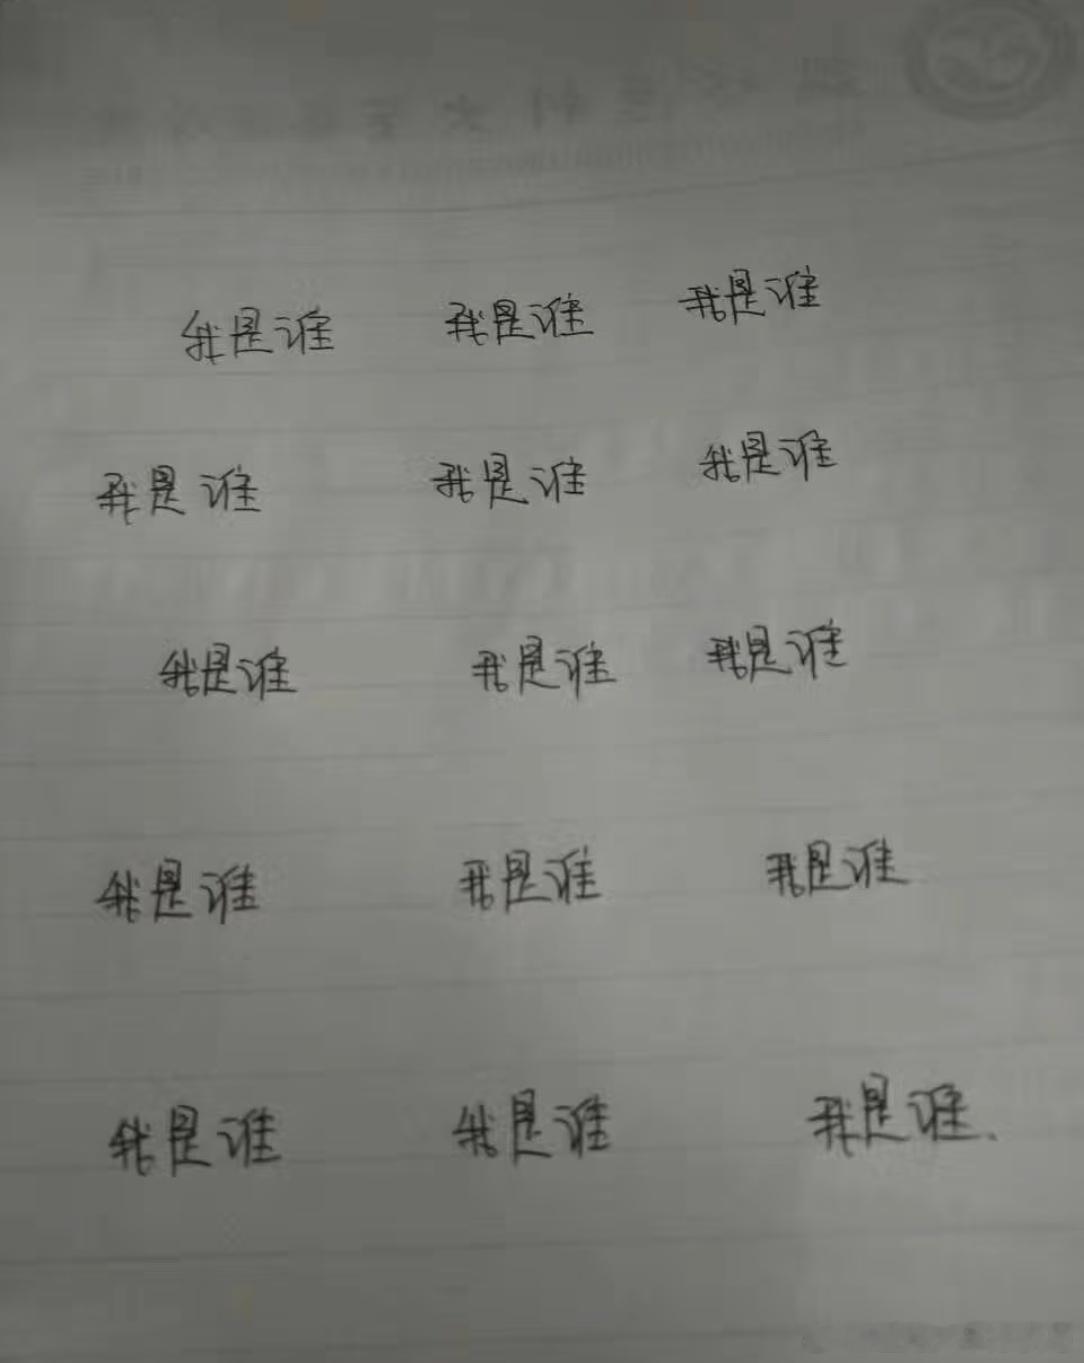 我是谁 我是谁 我是谁
我是谁 我是谁 我是谁
我是谁 我是谁 我是谁
我是谁 我是谁 我是谁
我是谁 我是谁 我是谁.